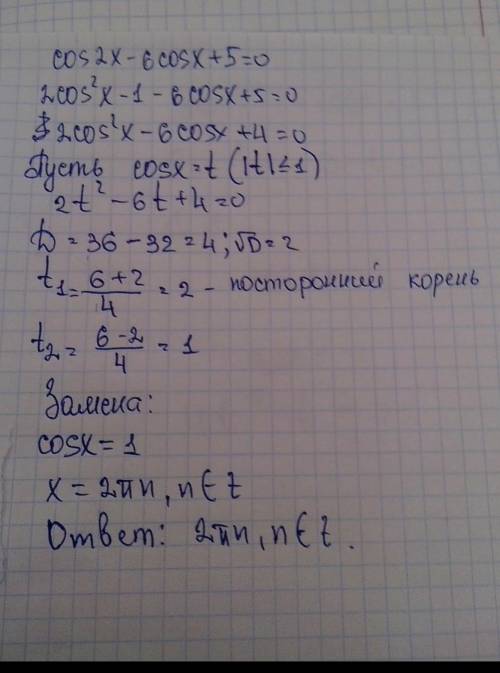 cos2x - 6cosx + 5 = 0
2cos²x - 1 - 6cosx + 5 = 0
2cos²x - 6cosx + 4 = 0
Пусть cosx = t (|t| ≤ 1)
2t² - 6t + 4 = 0
D = 36 - 32 = 4; √D = 2
t₁ = (6 + 2)/4 = 2 - посторонний корень
t₂ = (6 - 2)/4 = 1
Замена:
cosx = 1
x = 2πn, n ∈ z
Ответ: 2πn, n ∈ z.